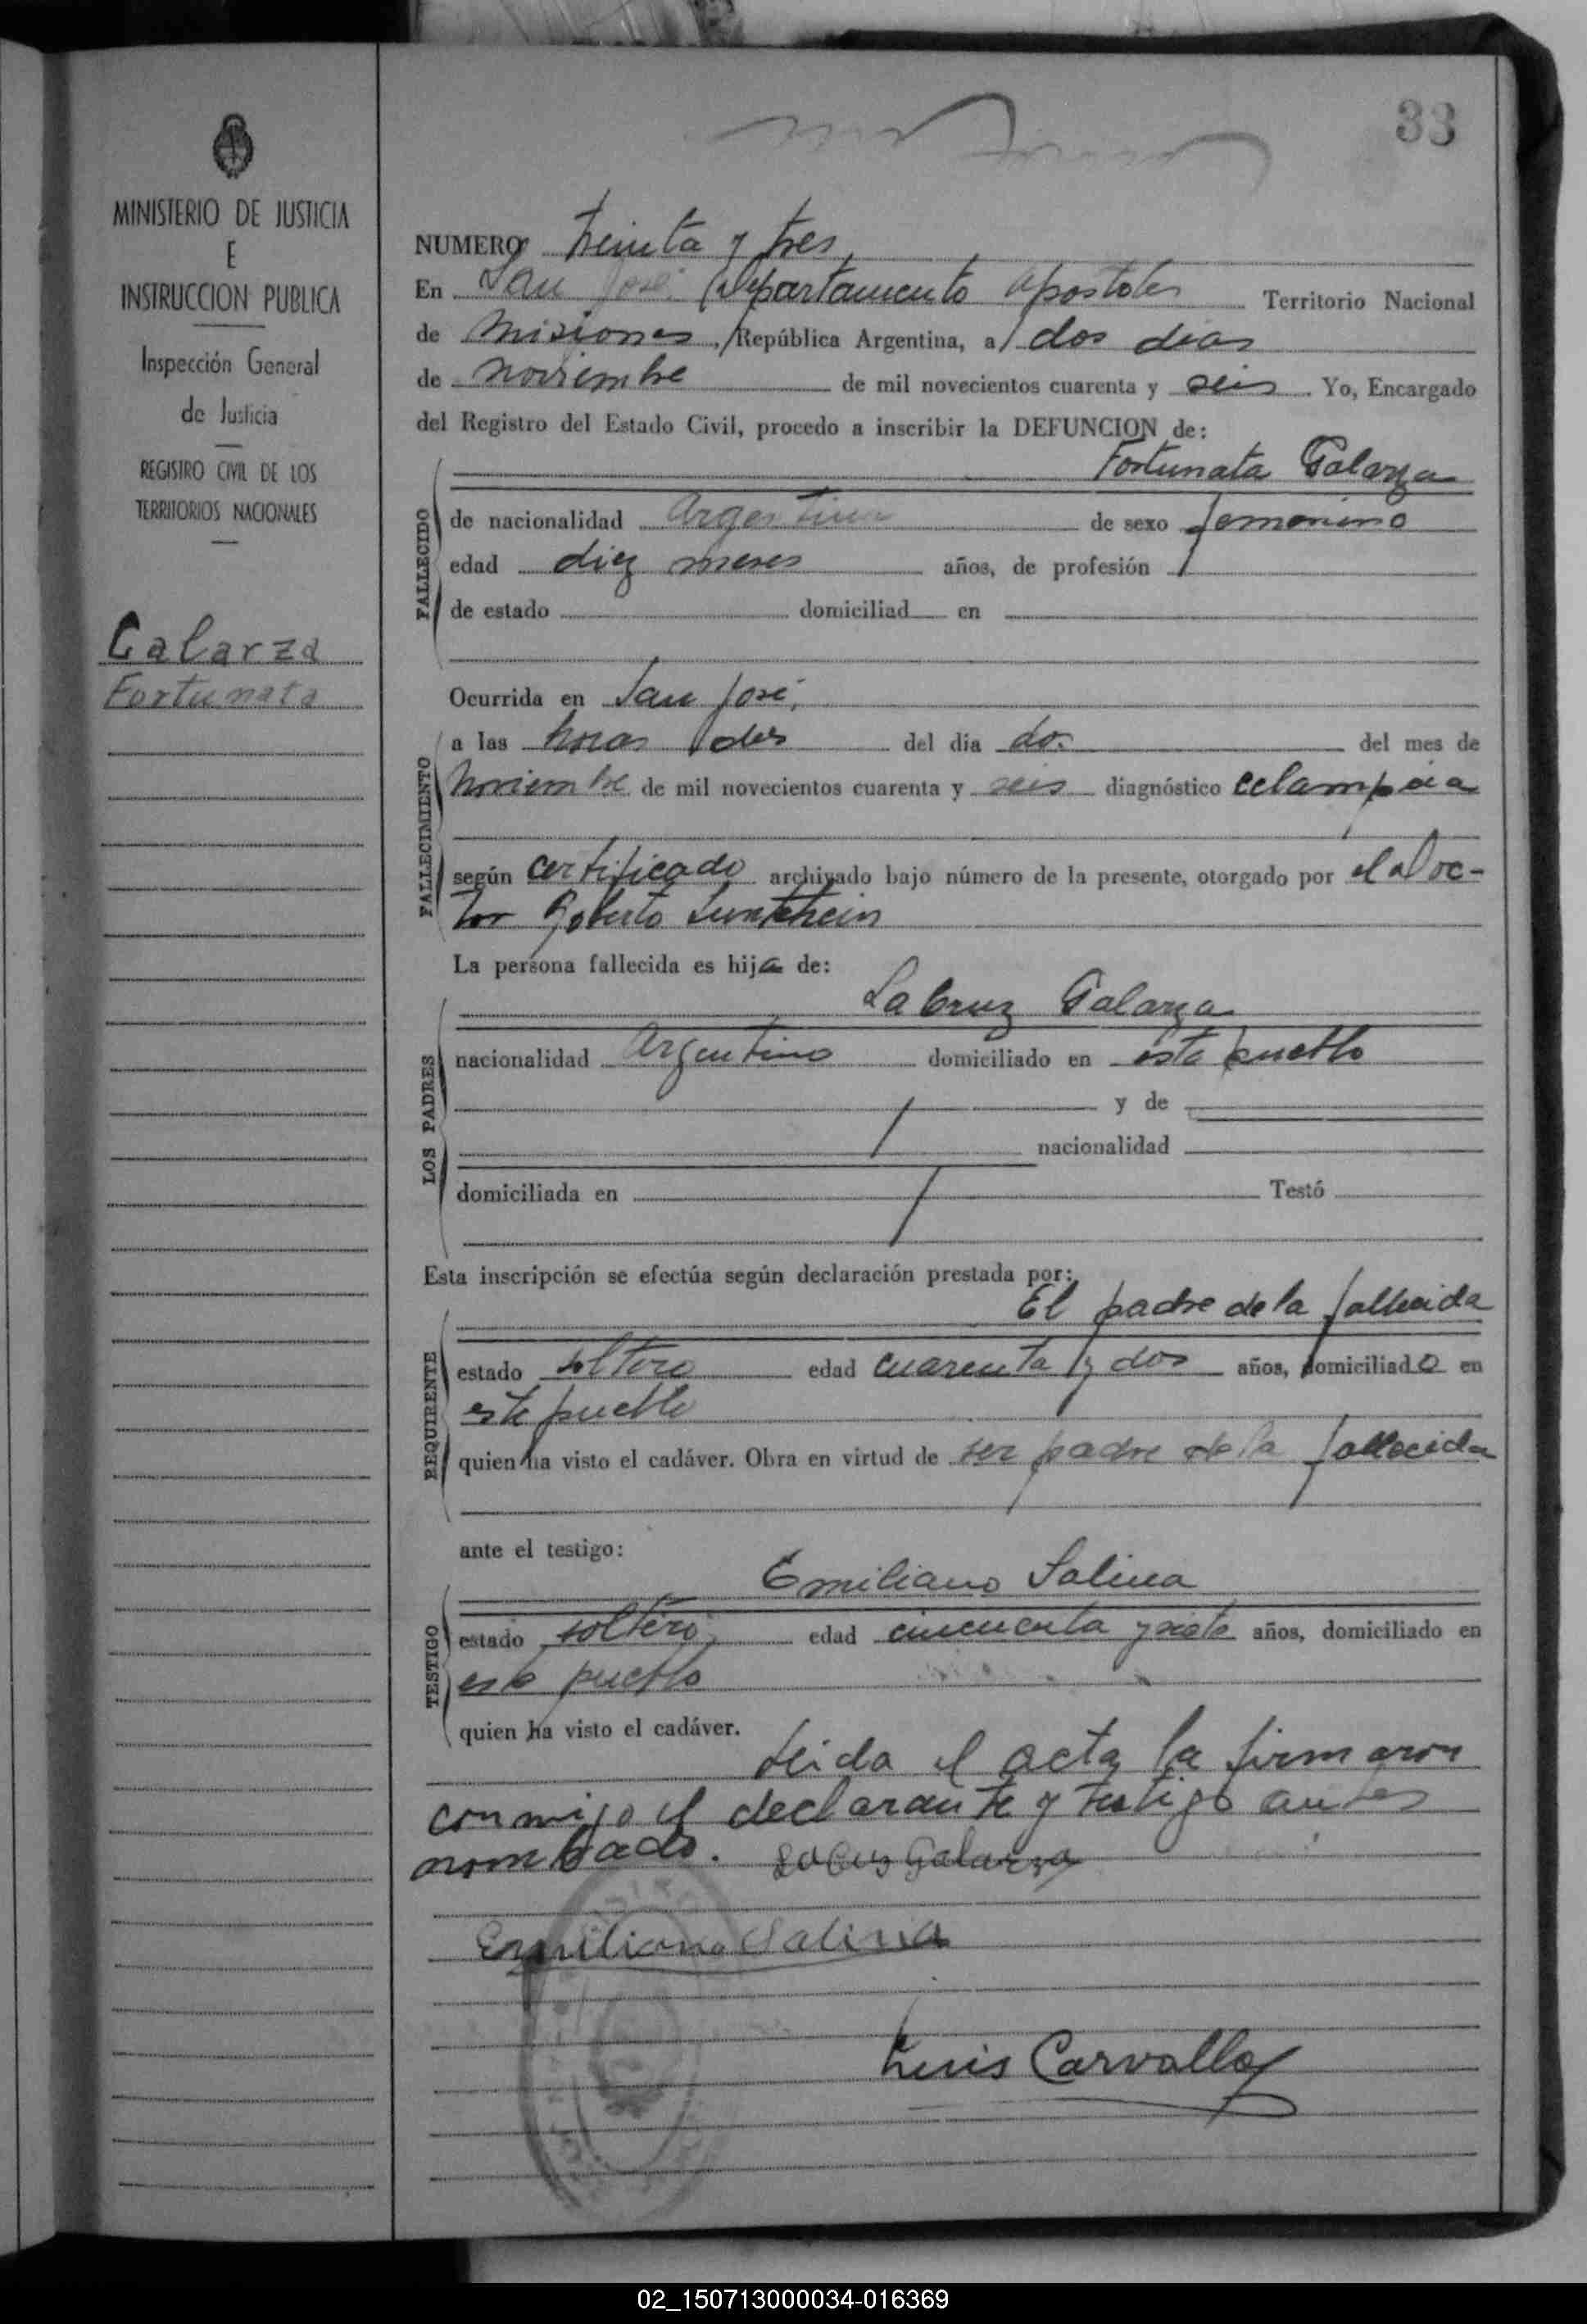 33
MINISTERIO DE JUSTICIA
E
INSTRUCCION PUBLICA
Inspección General
de Justicia
REGISTRO CIVIL DE LOS
TERRITORIOS NACIONALES
Galarza
Fortunata
NUMERO treinta y tres
En San José, Departamento Apostoles Territorio Nacional
de Misiones, República Argentina, a dos dias
de noviembre de mil novecientos cuarenta y seis Yo, Encargado
del Registro del Estado Civil, procedo a inscribir la DEFUNCION de:
Fortunata Galarza
FALLECIDO
de nacionalidad Argentina de sexo femenino
edad diez meses años, de profesión
de estado domiciliad en
Ocurrida en San José,
FALLECIMIENTO
a las horas dos del dia dos del mes de
noviembre de mil novecientos cuarenta y seis diagnóstico eclampsia
según certificado archivado bajo número de la presente, otorgado por el Doc-
tor Roberto
La persona fallecida es hija de:
La Cruz Galarza
LOS PADRES
nacionalidad Argentino domiciliado en este pueblo
y de
nacionalidad
domiciliada en Testó
Esta inscripción se efectúa según declaración prestada por:
El padre de la fallecida
REQUIRENTE
estado soltero edad cuarenta y dos años, domiciliado en
este pueblo
quien ha visto el cadáver. Obra en virtud de ser padre de la fallecida
ante el testigo:
Emiliano Salina
TESTIGO
estado soltero, edad cincuenta y siete años, domiciliado en
este pueblo
quien ha visto el cadáver.
Leida el acta la firmaron
conmigo el declarante y testigo antes
nombrado. La Cruz Galarza
Emiliano Salina
Luis Carvallo
02_150713000034-016369